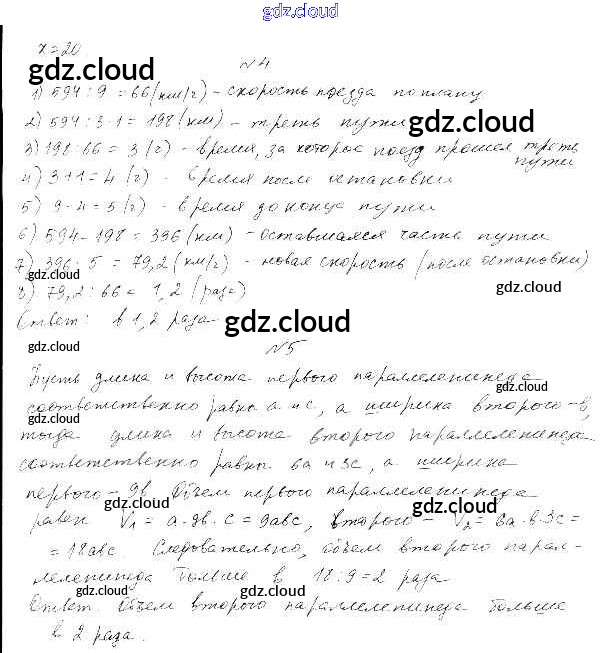 gdz.cloud
x = 20
gdz.cloud
№4
1) 594 : 9 = 66 (км/ч) - скорость поезда по плану
2) 594 : 3 · 1 = 198 (км) - треть пути
gdz.cloud
3) 198 : 66 = 3 (ч) - время, за которое поезд прошел треть
пути
4) 3 + 1 = 4 (ч) - время после остановки
5) 9 - 4 = 5 (ч) - время до конца пути
6) 594 - 198 = 396 (км) - оставшаяся часть пути
7) 396 : 5 = 79,2 (км/ч) - новая скорость (после остановки)
gdz.cloud
8) 79,2 : 66 = 1,2 (раза)
gdz.cloud
Ответ: в 1,2 раза
gdz.cloud
№5
gdz.cloud
Пусть длина и высота первого параллелепипеда
gdz.cloud
соответственно равны а и с, а ширина второго - в,
gdz.cloud
тогда длина и высота второго параллелепипеда
gdz.cloud
соответственно равны 6а и 3с, а ширина
первого - 9в. Объем первого параллелепипеда
gdz.cloud
равен V₁ = а · 9в · с = 9авс, второго - V₂ = 6а · в · 3с =
gdz.cloud
= 18авс. Следовательно, объем второго парал-
лелепипеда больше в 18 : 9 = 2 раза
gdz.cloud
gdz.cloud
Ответ. Объем второго параллелепипеда больше
в 2 раза.
gdz.cloud